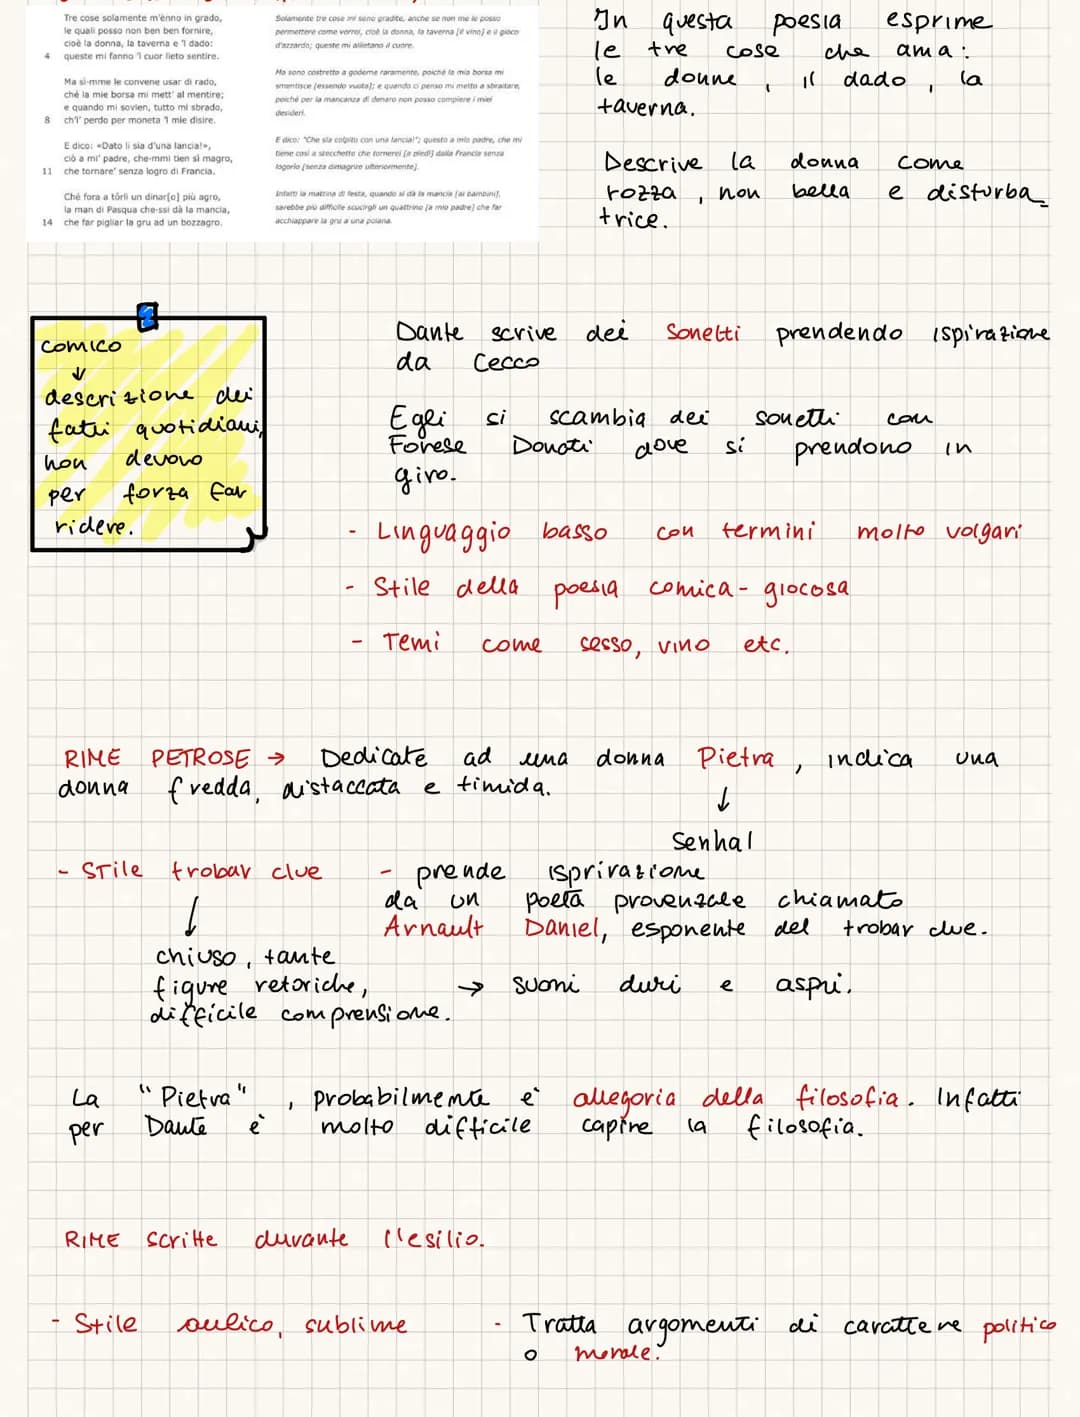 Tre cose solamente m'ènno in grado,
le quali posso non ben ben fornire,
cioè la donna, la taverna e 'l dado:
4 queste mi fanno 'l cuor lieto sentire.
Ma sì-mme le convene usar di rado,
ché la mie borsa mi mett' al mentire;
e quando mi sovien, tutto mi sbrado,
8 ch'i' perdo per moneta 'l mie disire.
E dico: «Dato li sia d'una lancia!»,
ciò a mi' padre, che-mmi tien sì magro,
11 che tornare' senza logro di Francia.
Ché fora a tôrli un dinar[o] più agro,
la man di Pasqua che-ssi dà la mancia,
14 che far pigliar la gru ad un bozzagro.
Solamente tre cose mi sono gradite, anche se non me le posso
permettere come vorrei, cioè la donna, la taverna [il vino] e il gioco
d'azzardo; queste mi allietano il cuore.
Ma sono costretto a goderne raramente, poiché la mia borsa mi
smentisce [essendo vuota]; e quando ci penso mi metto a sbraitare,
poiché per la mancanza di denaro non posso compiere i miei
desideri.
E dico: "Che sia colpito con una lancia!"; questo a mio padre, che mi
tiene così a stecchetto che tornerei [a piedi] dalla Francia senza
logorlo [senza dimagrire ulteriormente].
Infatti la mattina di festa, quando si dà la mancia [ai bambini],
sarebbe più difficile scucirgli un quattrino [a mio padre] che far
acchiappare la gru a una poiana.
In questa poesia esprime
le tre cose che ama:
le donne, il dado, la
taverna.
Descrive la donna come
rozza, non bella e disturba_
trice.
COMICO
↓
descrizione dei
fatti quotidiani,
non devono
per forza far
ridere.
Dante scrive dei Sonetti prendendo ispirazione
da Cecco
Egli si scambia dei sonetti con
Forese Donati dove si prendono in
giro.
- Linguaggio basso con termini molto volgari
- Stile della poesia comica-giocosa
- Temi come sesso, vino etc.
RIME PETROSE → Dedicate ad una donna Pietra, indica una
donna fredda, distaccata e timida.
↓
Senhal
- Stile trobar clue
↓
chiuso, tante
figure retoriche,
difficile comprensione.
- prende isprirazione
da un poeta provenzale chiamato
Arnault Daniel, esponente del trobar clue.
→ suoni duri e aspri.
La "Pietra", probabilmente è allegoria della filosofia. Infatti
per Dante è molto difficile capire la filosofia.
RIME scritte durante l'esilio.
- Stile aulico, sublime
- Tratta argomenti di carattere politico
o morale.